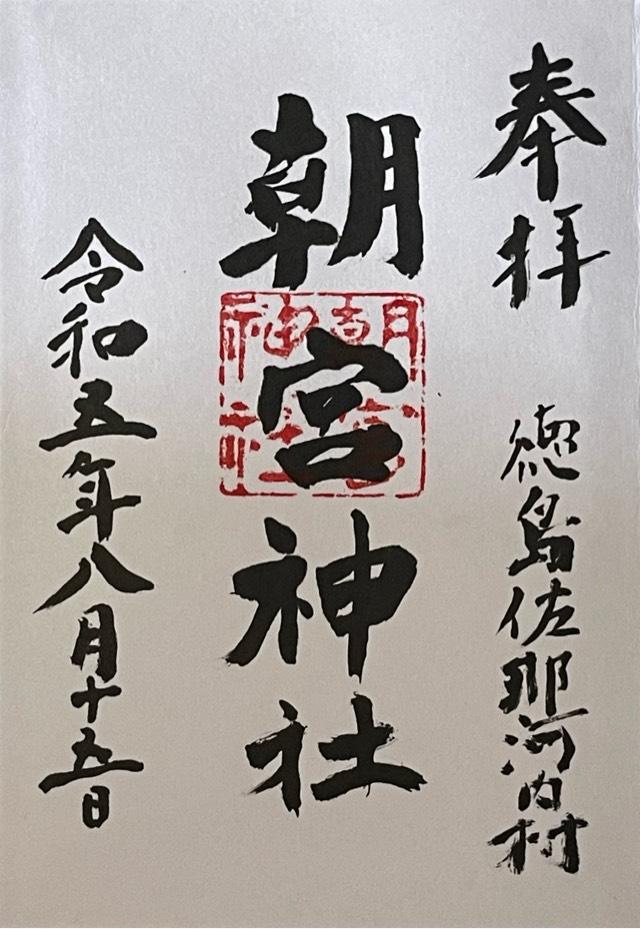 奉拝
徳島佐那河内村
朝宮神社
朝宮
神社
令和五年八月十五日